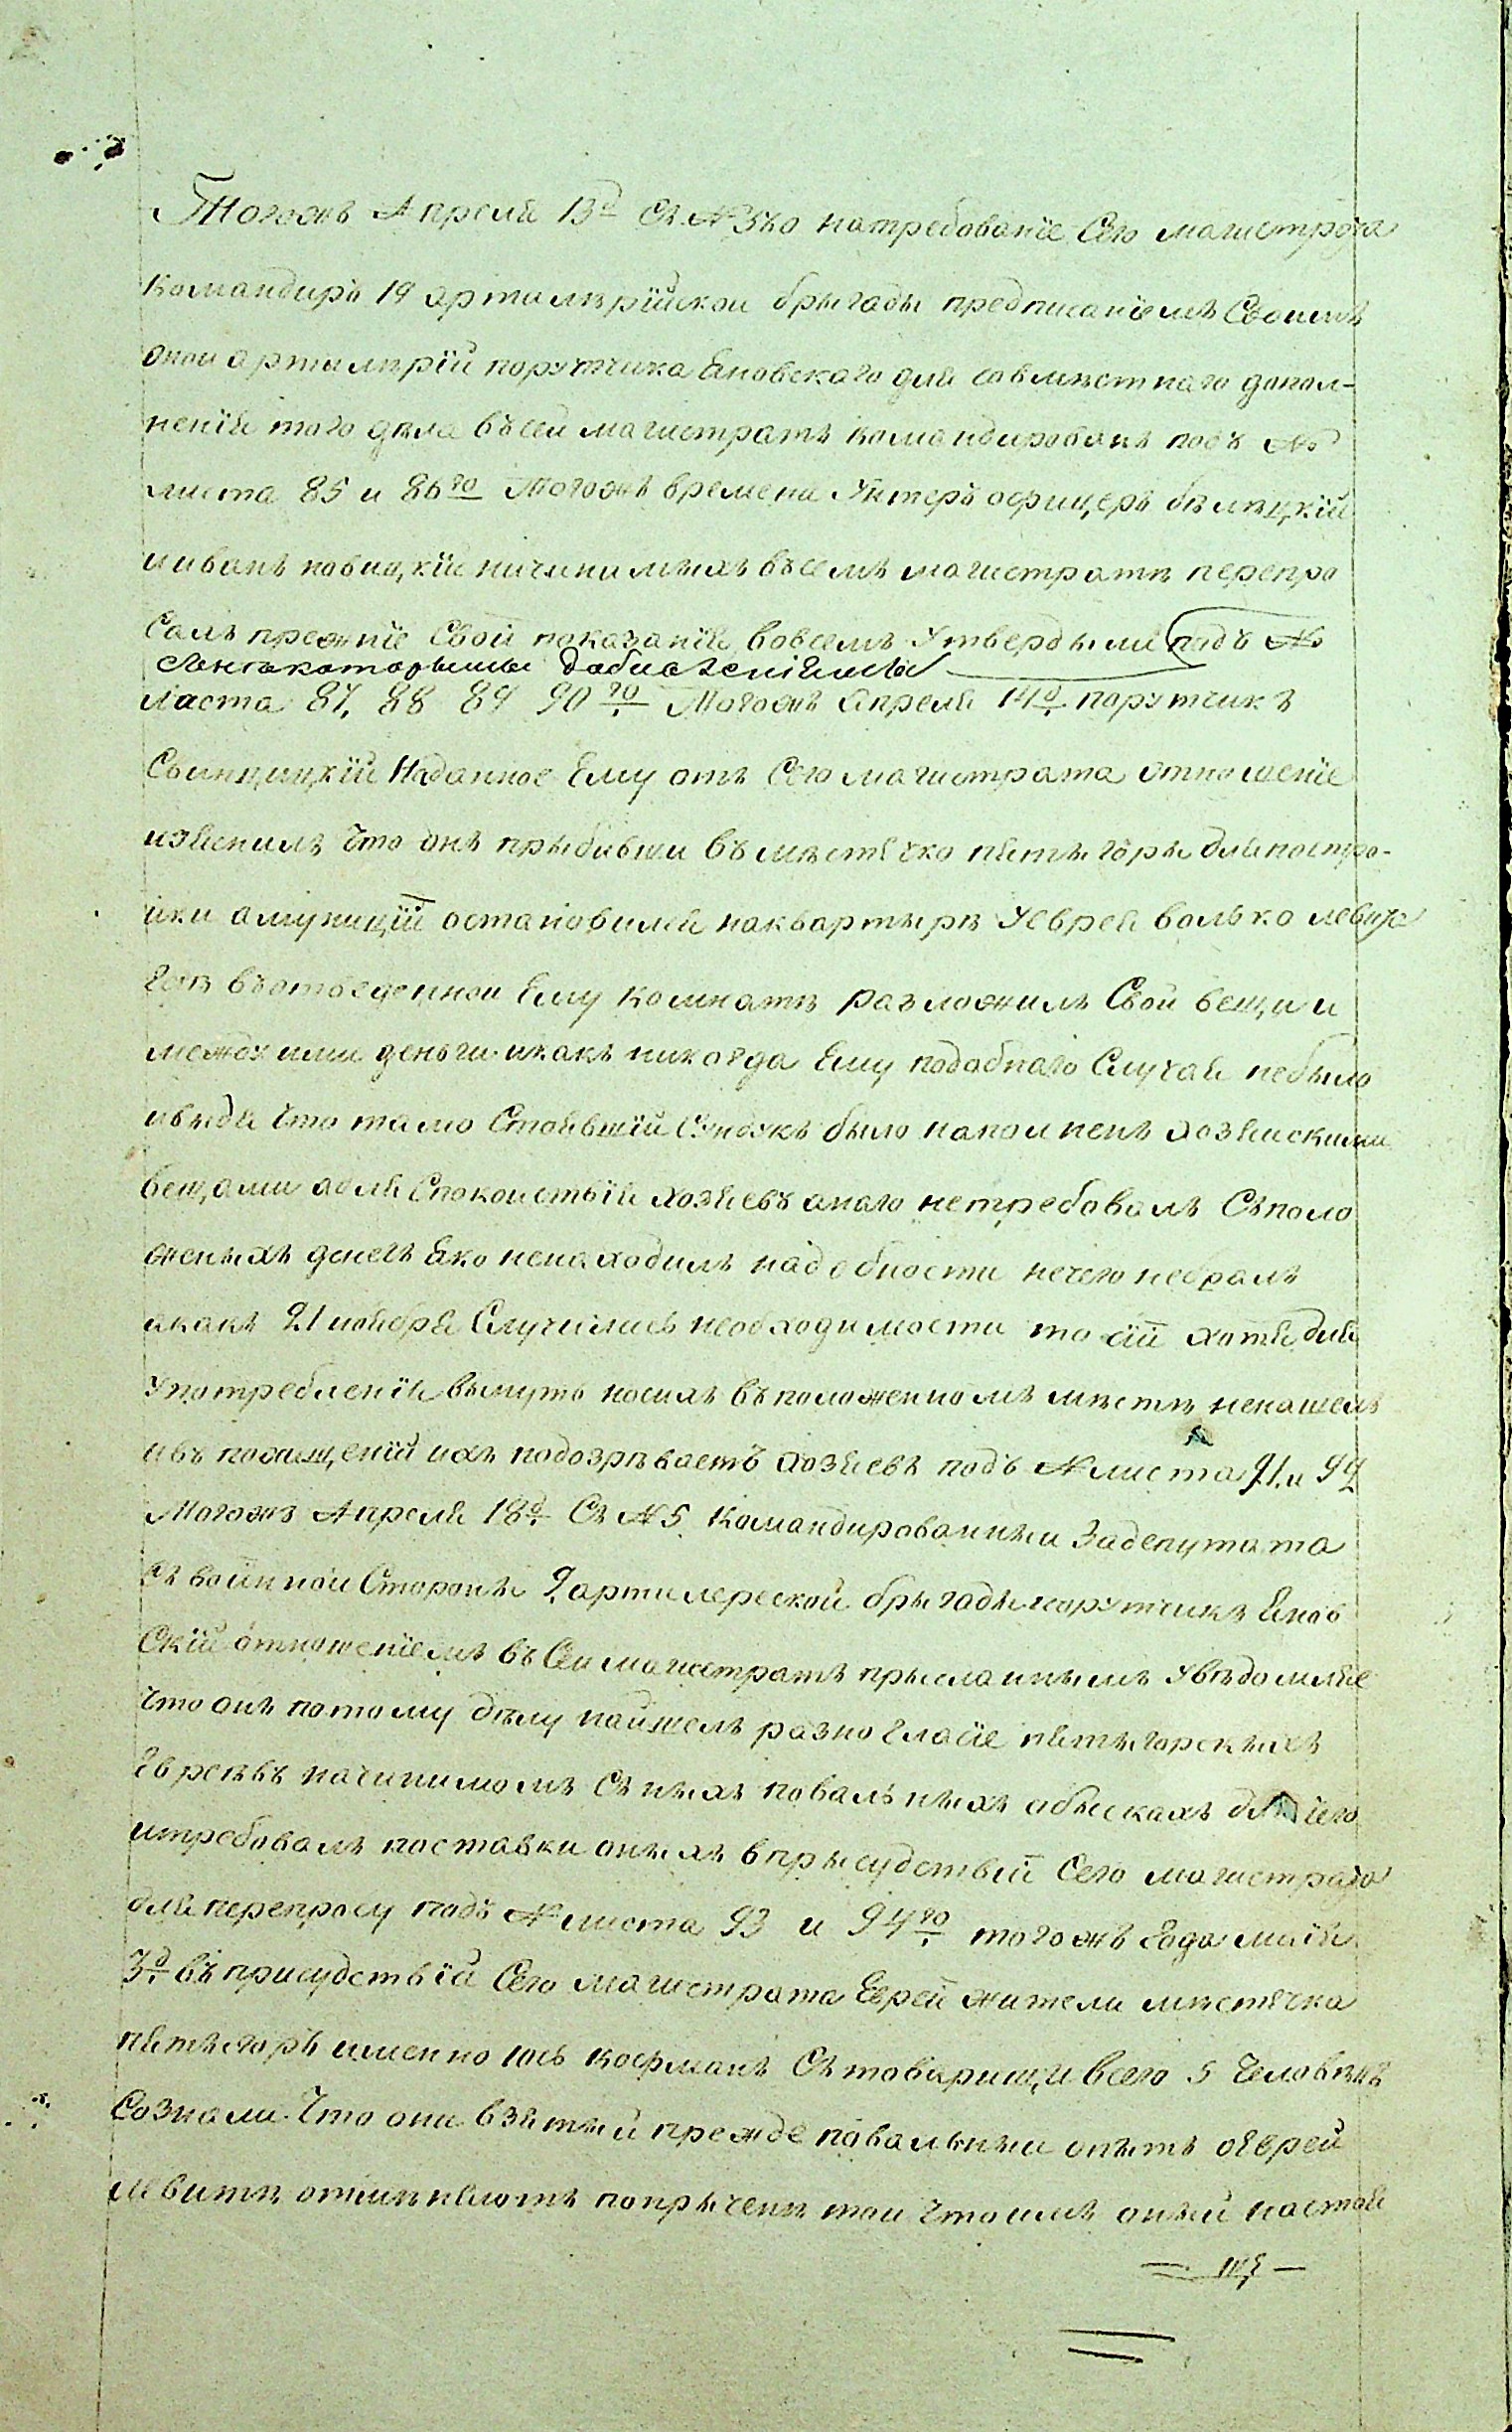 Тогожъ Апреля 13<sup>д</sup> Съ № 3ьо натребованіе Сего магистрата
Командиръ 19 артилѣрійской брыгады предписаніемъ Своимъ
оной артилѣрій порутчика Яновскаго для совмѣстнаго допол-
ненія того дѣла въсей магистратъ командированъ подъ №
листа 85 и 86<sup>го</sup> Тогожъ времени Унтеръ офицеръ бѣлецкій
и иванъ новицкій ничинимыхъ въсемъ магистратѣ перепро
Сахъ прежніе Свои показаній вовсемъ Утвердыли подъ №
снѣкоторымы добавленіямы
листа 87, 88 89 90<sup>го</sup> Тогожъ Апреля 14<sup>д</sup> порутчикъ
Свинцицкій Наданное Ему отъ Сего магистрата отношеніе
изяснилъ что онъ прыбывши въ мѣстечко пятыгоры для постро-
йки амуницій остановился наквартырѣ Уеврея волько левита
гдѣ въотведенной Ему комнатѣ разложилъ Свои вещи и
между ими деньги икакъ никогда Ему подобнаго Случая небыло
ивыдя что тамо Стоявшій Сундукъ было наполненъ хозяискими
вещами адля Спокоиствія хозяевъ онаго нетребовалъ Съполо
женыхъ денегъ Яко ненаходилъ надобности нечего небралъ
акакъ 21 ноября Случилась необходимости то сій хотя для
Употребленія вынуть носихъ въположенномъ мѣстѣ ненашелъ
ивъ похищеній ихъ подозрѣваетъ хозяевъ подъ № листа 91 и 92
Тогожъ Апреля 18<sup>д</sup> Съ № 5 Командированный Задепутата
Съ воинной Стороны 9 артилереской брыгады порутчикъ Янов
Скій отношеніемъ въ Сей магистратъ прысланнымъ Увѣдомляе
что онъ потому дѣлу найшелъ разногласіе пятыгорскыхъ
Евреевъ начинимомъ Съ ныхъ повальныхъ абыскахъ для чего
итребовалъ поставки оныхъ впрысудствый Сего магистрата
для перепросу подъ № листа 93 и 94<sup>го</sup> тогожъ Года мая
3<sup>д</sup> въ присудствій Сего магистрата Еврей жители мѣстечка
пятыгоръ именно іось кофманъ Сътоварищи всего 5 человѣкъ
Сознали что они взятый прежде повальный опытъ оевреи
левитѣ отмѣняютъ попрычинѣ той что имъ оный настоя